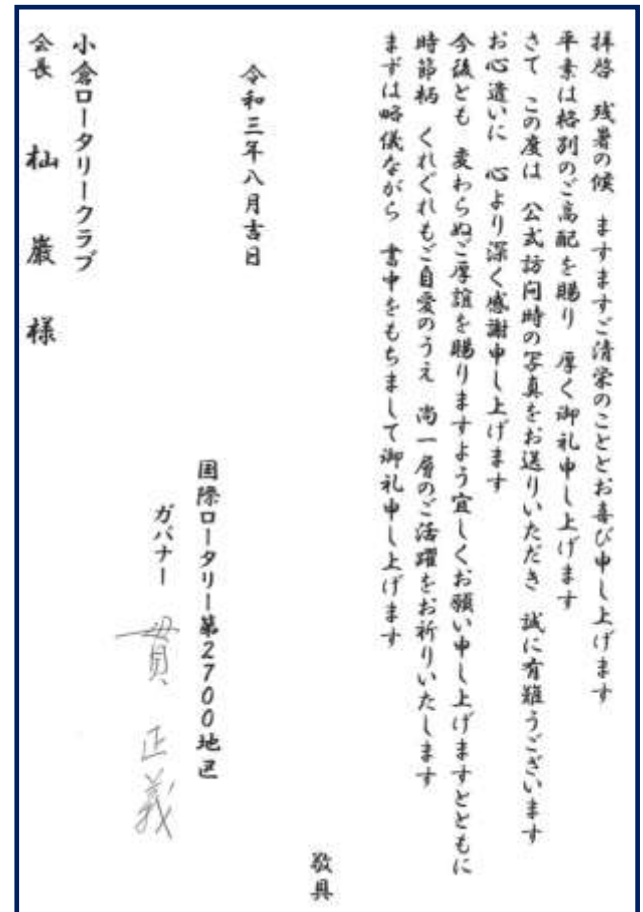 拝啓 残暑の候 ますますご清栄のこととお喜び申し上げます
平素は格別のご高配を賜り 厚く御礼申し上げます
さて この度は 公式訪問時の写真をお送りいただき 誠に有難うございます
お心遣いに 心より深く感謝申し上げます
今後とも 変わらぬご厚誼を賜りますよう宜しくお願い申し上げますとともに
時節柄 くれぐれもご自愛のうえ 尚一層のご活躍をお祈りいたします
まずは略儀ながら 書中をもちまして御礼申し上げます
敬具
令和三年八月吉日
国際ロータリー第2700地区
ガバナー 貫 正義
小倉ロータリークラブ
会長 杣 巌 様